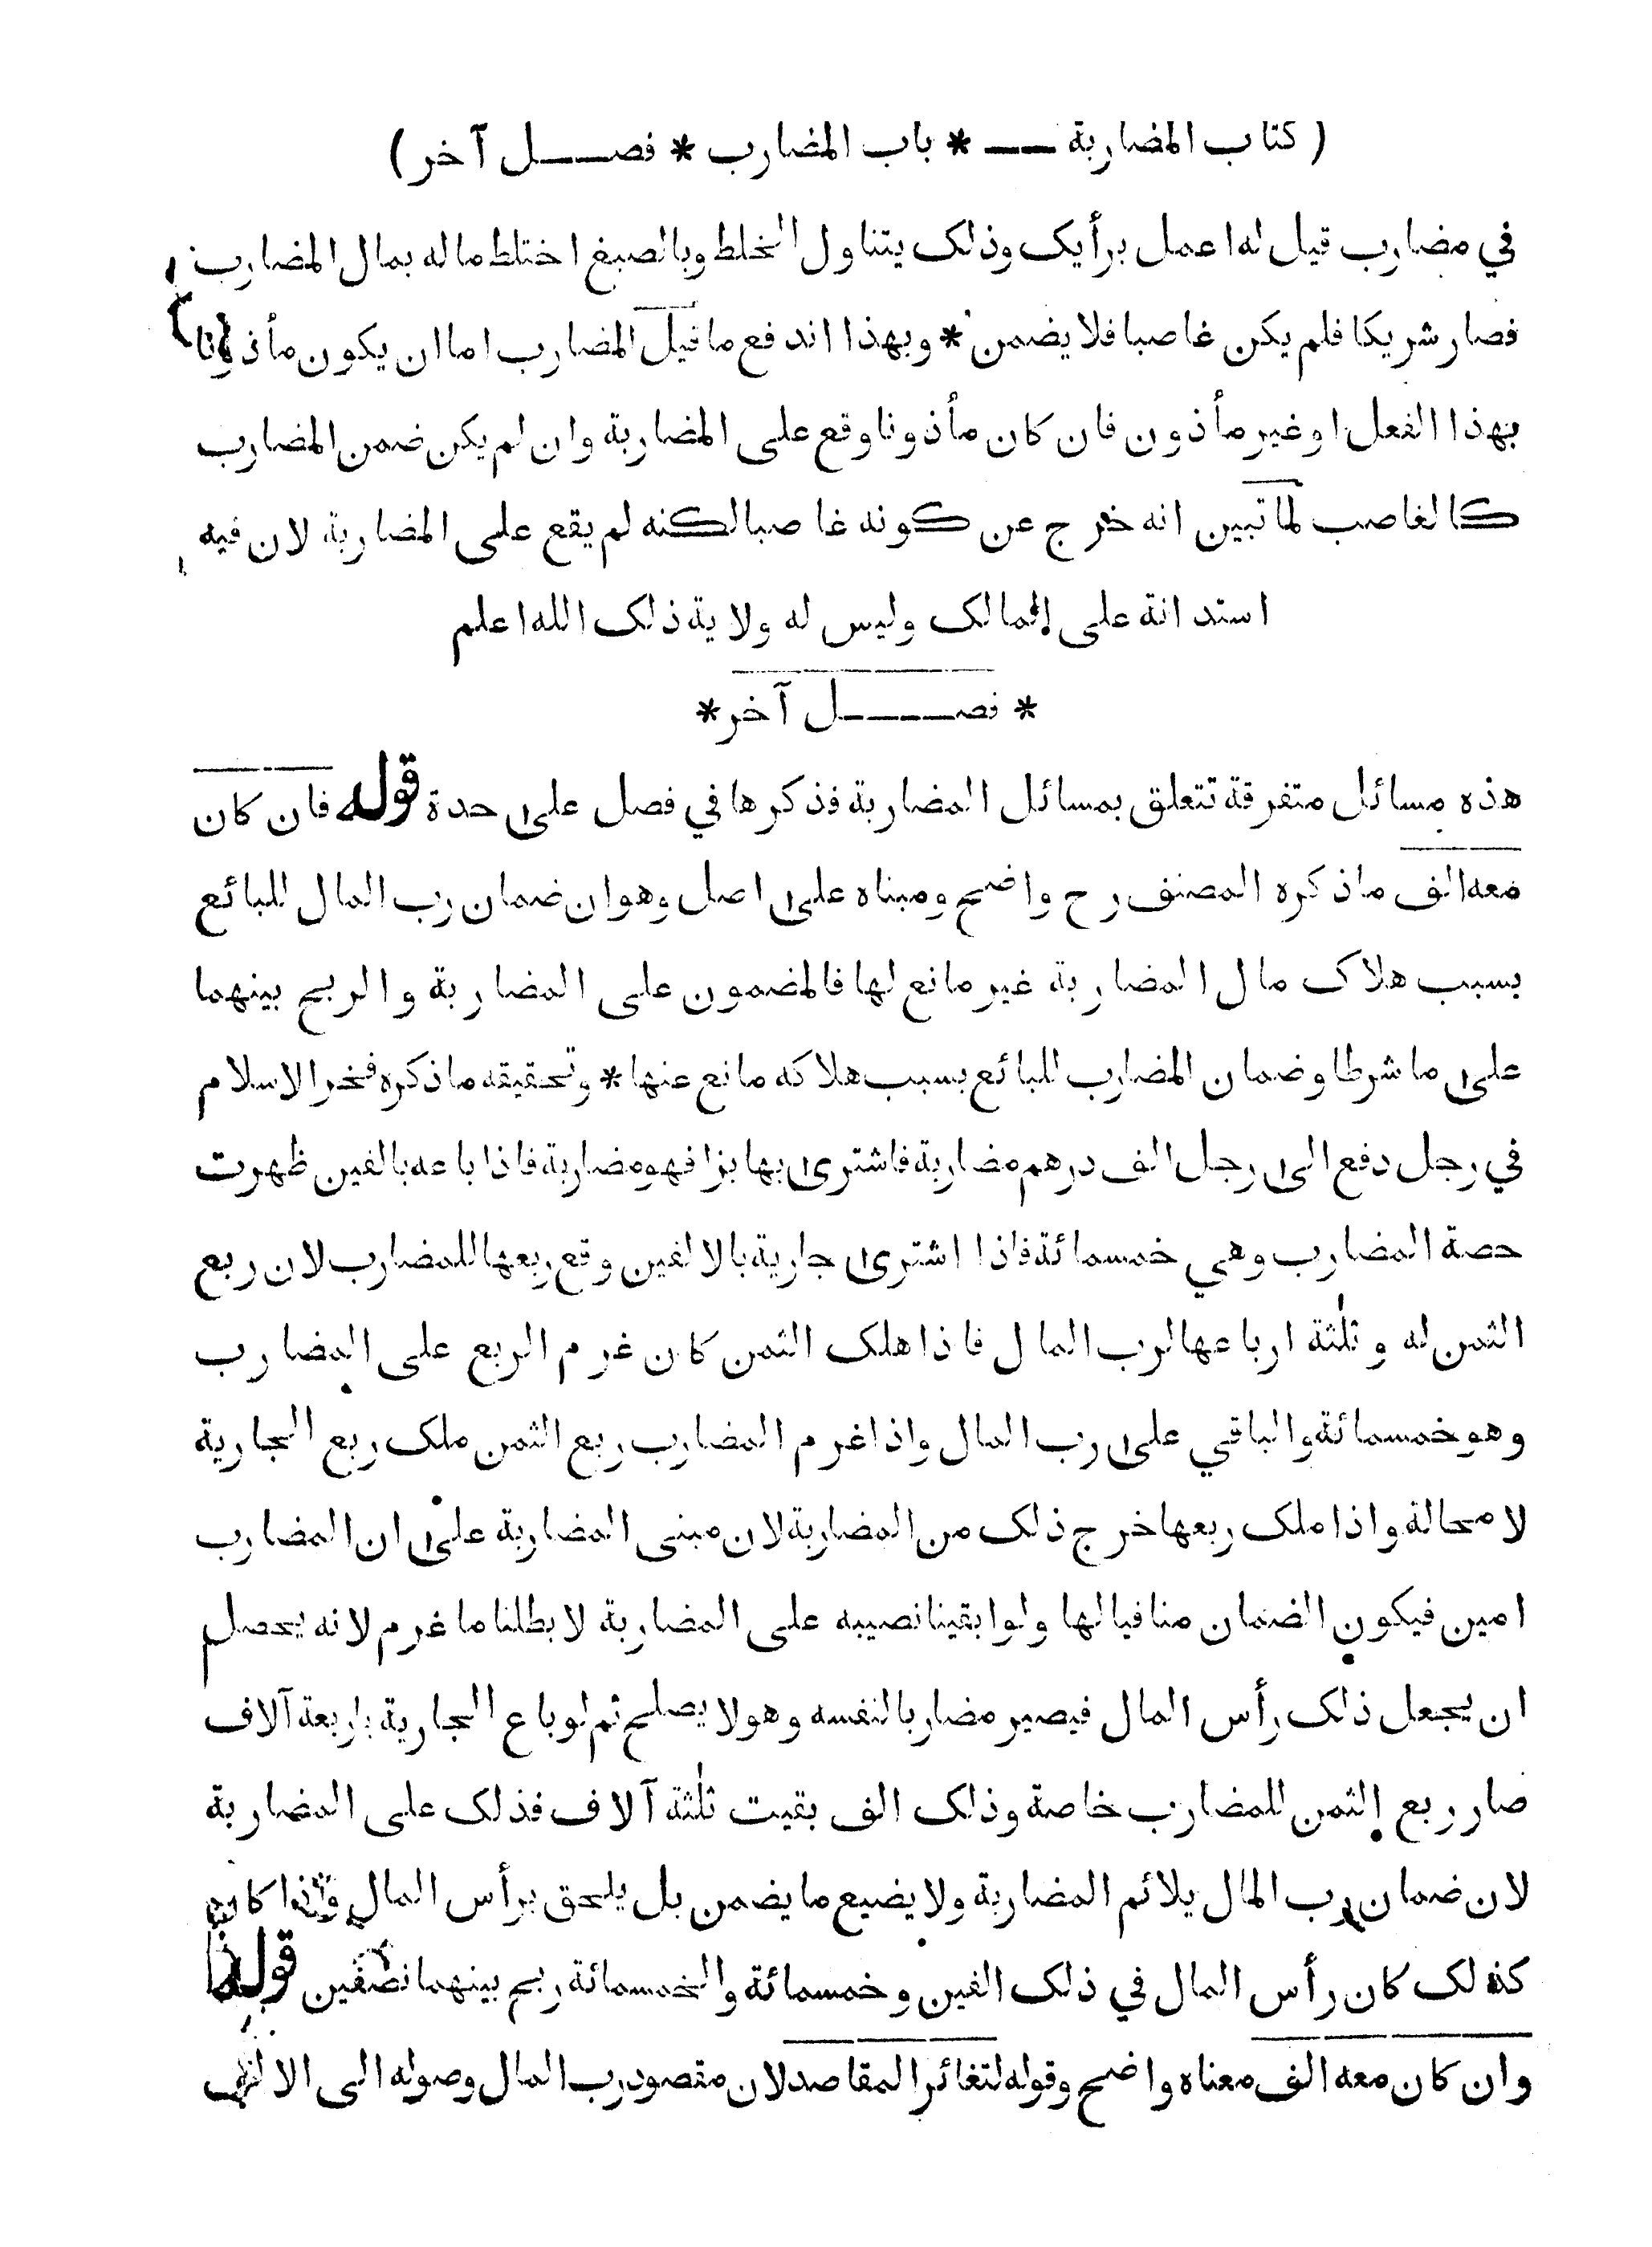 ( كتاب المضاربة ـــ * باب المضارب * فصـــل آخر )
في مضارب قيل له اعمل برأيك وذلك يتناول الخلط وبالصبغ اختلط ماله بمال المضارب
فصار شريكا فلم يكن غاصبا فلا يضمن * وبهذا اندفع ما قيل المضارب اما ان يكون مأذونا
بهذا الفعل او غير مأذون فان كان مأذونا وقع على المضاربة وان لم يكن ضمن المضارب
كالغاصب لما تبين انه خرج عن كونه غاصبا لكنه لم يقع على المضاربة لان فيه
استدانة على المالك وليس له ولاية ذلك الله اعلم
* فصــــل آخر *
هذه مسائل متفرقة تتعلق بمسائل المضاربة فذكرها في فصل على حدة قوله فان كان
معه الف ما ذكره المصنف رح واضح ومبناه على اصل وهو ان ضمان رب المال للبائع
بسبب هلاك مال المضاربة غير مانع لها فالمضمون على المضاربة والربح بينهما
على ما شرطا وضمان المضارب للبائع بسبب هلاكه مانع عنها * وتحقيقه ما ذكره فخر الاسلام
في رجل دفع الى رجل الف درهم مضاربة فاشترى بها بزا فهو مضاربة فاذا باعه بالفين ظهرت
حصة المضارب وهي خمسمائة فاذا اشترى جارية بالالفين وقع ربعها للمضارب لان ربع
الثمن له وثلٰثة ارباعها لرب المال فاذا هلك الثمن كان غرم الربع على المضارب
وهو خمسمائة والباقي على رب المال واذا غرم المضارب ربع الثمن ملك ربع الجارية
لا محالة واذا ملك ربعها خرج ذلك من المضاربة لان مبنى المضاربة على ان المضارب
امين فيكون الضمان منافيا لها ولو ابقينا نصيبه على المضاربة لابطلنا ما غرم لانه يحصل
ان يجعل ذلك رأس المال فيصير مضاربا لنفسه وهو لا يصلح ثم لو باع الجارية باربعة آلاف
صار ربع الثمن للمضارب خاصة وذلك الف بقيت ثلٰثة آلاف فذلك على المضاربة
لان ضمان رب المال يلائم المضاربة ولا يضيع ما يضمن بل يلحق برأس المال واذا كان
كذلك كان رأس المال في ذلك الفين وخمسمائة والخمسمائة ربح بينهما نصفين قوله
وان كان معه الف معناه واضح وقوله لتغائر المقاصد لان مقصود رب المال وصوله الى الالف